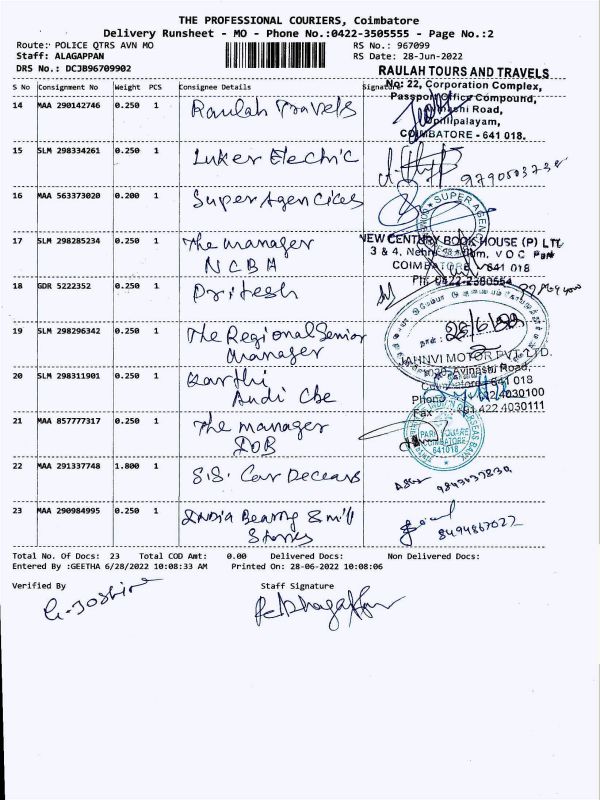 THE PROFESSIONAL COURIERS, Coimbatore
Delivery Runsheet - MO - Phone No.:0422-3505555 - Page No.:2
Route: POLICE QTRS AVN MO
RS No.: 967099
Staff: ALAGAPPAN
RS Date: 28-Jun-2022
DRS No.: DCJB96709902
RAULAH TOURS AND TRAVELS
No: 22, Corporation Complex,
Passport Office Compound,
COIMBATORE - 641 018.
S No Consignment No Weight PCS Consignee Details Signature
14 MAA 290142746 0.250 1 Raulah Travels
15 SLM 298334261 0.250 1 Luker Electric
16 MAA 563373020 0.200 1 Super Agencices
SUPER AGEN
17 SLM 298285234 0.250 1 The manager
NCBA
NEW CENTURY BOOK HOUSE (P) LTD
COIMBATORE 641 018
Ph: 0422-2380554
18 GDR 5222352 0.250 1 Pritesh
19 SLM 298296342 0.250 1 The Regional Senior
manager
28/6/22
20 SLM 298311901 0.250 1 Karthi
Audi Cbe
JAHNVI MOTOR PVT LTD.
Avinashi Road,
Coimbatore 641 018
Phone 422 4030100
Fax +91 422 4030111
21 MAA 857777317 0.250 1 The manager
IOB
INDIAN OVERSEAS BANK
PARK SQUARE
COIMBATORE
641018
22 MAA 291337748 1.800 1 S.S. Car Decears
23 MAA 290984995 0.250 1 India Bearing & mill
Stores
8494867022
Total No. Of Docs: 23 Total COD Amt: 0.00 Delivered Docs: Non Delivered Docs:
Entered By :GEETHA 6/28/2022 10:08:33 AM Printed On: 28-06-2022 10:08:06
Verified By Staff Signature